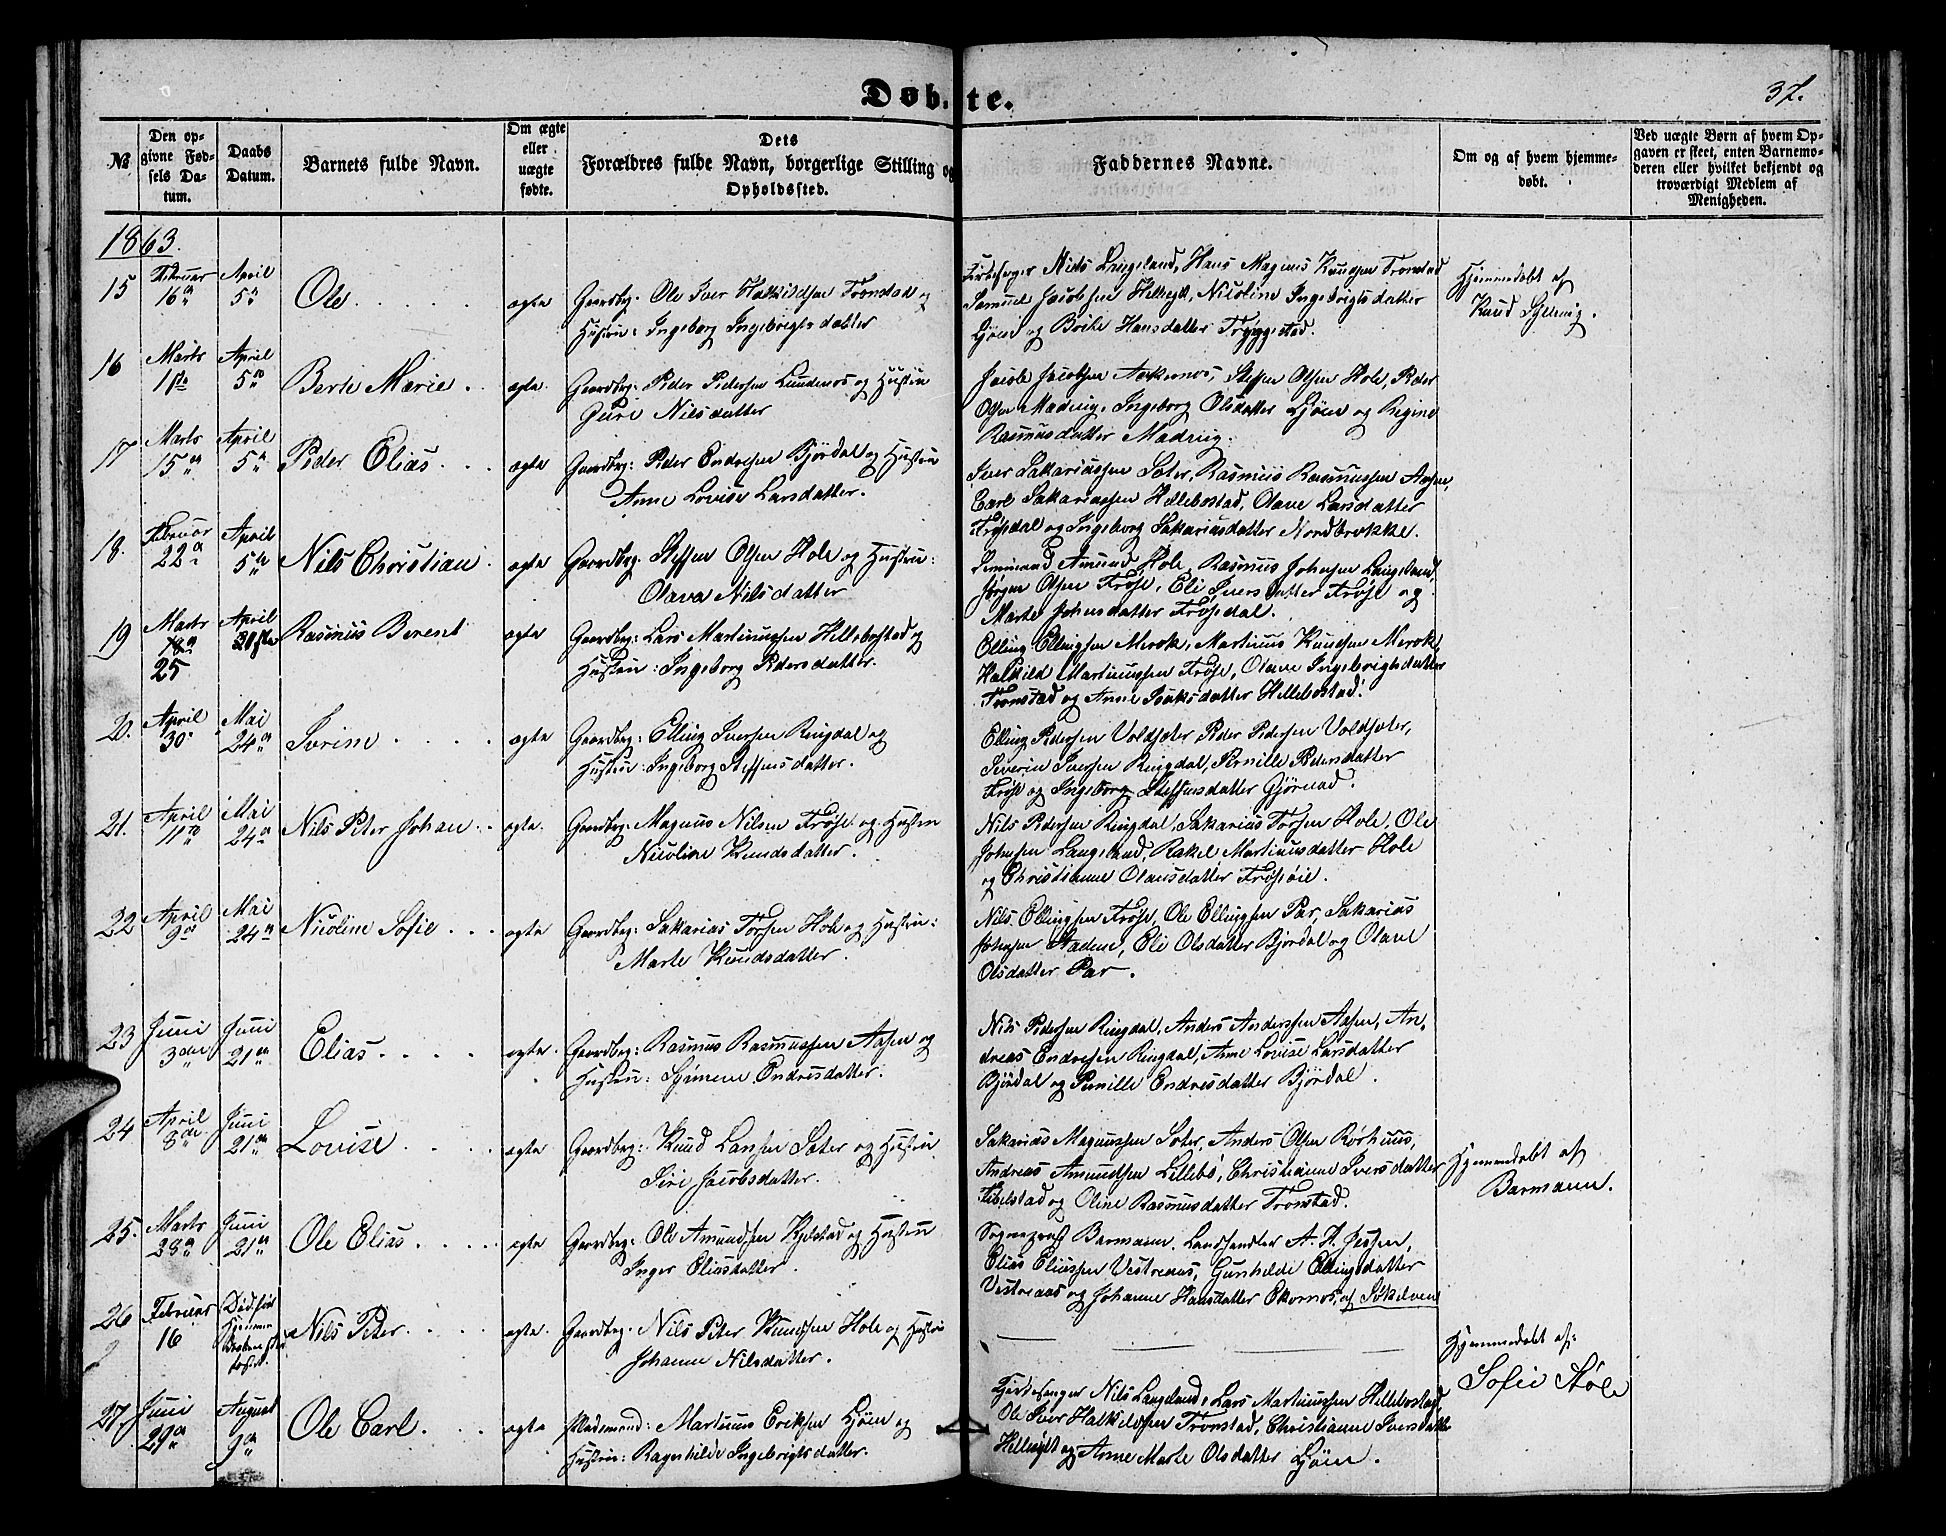 Døbte.
37.
№
Den opgivne Fødsels Datum.
Daabs Datum.
Barnets fulde Navn.
Om ægte eller uægte fødte.
Dets Forældres fulde Navn, borgerlige Stilling og Opholdssted.
Faddernes Navne.
Om og af hvem hjemmedøbt.
Ved uægte Børn af hvem Opgaven er skeet, enten Barnemoderen eller hvilket bekjendt og troværdigt Medlem af Menigheden.
1863.
15 Februar 16 April 5 Ole ægte
Gaardbrg: Ole Iver Halkildsen Tronstad og
Hustru: Ingeborg Ingebrigtsdatter
Nils Langeland, Hans Magnus Knudsen Tronstad
Samuel Jacobsen Hellesylt, Nicoline Ingebrigtsdatter
Ljøen og Brite Hansdatter Tryggestad.
Hjemmedøbt af
Knud Sylling.
16 Marts 1ste April 5 Berte Marie ægte.
Gaardbrg: Peder Pedersen Lundenæs og Hustru
Guri Nilsdatter
Jacob Jacobsen Aakernes, Steffen Olsen Hole, Peder
Olsen Madvig, Ingeborg Olsdatter Ljøen og Regine
Rasmusdatter Madvig.
17 Marts 15 April 5 Peder Elias ægte
Gaardbrg: Peder Endresen Bjørdal og Hustru
Anne Lovise Larsdatter.
Iver Sakariassen Sæter, Rasmus Rasmussen Aasen,
Carl Sakariassen Hellebostad, Olave Larsdatter
Frøsdal og Ingeborg Sakariasdatter Nordbrække.
18. Februar 22 April 5 Nils Christian ægte
Gaardbrg: Steffen Olsen Hole og Hustru:
Olava Nilsdatter
Amund Hole, Rasmus Johnsen Langeland,
Jørgen Olsen Frøse, Eli Iversdatter Frøse og
Marte Johnsdatter Frøsedal.
19 Marts 18 25 April Rasmus Berent ægte
Gaardbrg: Lars Martinussen Hellebostad og
Hustru: Ingeborg Pedersdatter.
Elling Ellingsen Merok, Martinus Knudsen Merok,
Halkild Martinussen Frøse, Olave Ingebrigtsdatter
Tronstad og Anne Isaksdatter Hellebostad.
20. April 30 Mai 24 Ivrine ægte
Gaardbrg: Elling Iversen Ringdal og
Hustru: Ingeborg Steffensdatter.
Elling Pedersen Voldsæter, Peder Pedersen Voldsæter,
Severin Iversen Ringdal, Pernille Pedersdatter
Frøse og Ingeborg Steffensdatter Gjørvad.
21. April 11te Mai 24 Nils Peter Johan ægte.
Gaardbrg: Magnus Nilsen Frøse og Hustru
Nicoline Knudsdatter.
Nils Pedersen Ringdal, Sakarias Torsen Hole, Ole
Johnsen Langeland, Rakel Martinusdatter Hole
og Christianne Olausdatter Frøsøie.
22 April 9 Mai 24 Nicoline Sofie ægte
Gaardbrg: Sakarias Torsen Hole og Hustru:
Marte Knudsdatter.
Nils Ellingsen Frøse, Ole Ellingsen Par, Sakarias
Johnsen Stadene, Eli Olsdatter Bjørdal og Olave
Olsdatter Par.
23 Juni 3die Juni 21 Elias ægte.
Gaardbrg: Rasmus Rasmussen Aasen og
Hustru: Synneve Endresdatter.
Nils Pedersen Ringdal, Anders Anderssen Aasen, An-
dreas Endresen Ringdal, Anne Lovise Larsdatter
Bjørdal og Pernille Endresdatter Bjørdal.
24 April 8de Juni 21 Lovise ægte
Gaardbrg: Knud Larsen Sæter og Hustru
Siri Jacobsdatter.
Sakarias Magnussen Sæter, Anders Olsen Rørhuus,
Andreas Amundsen Lillebø, Christianne Iversdatter
Fibelstad og Oline Rasmusdatter Tronstad.
Hjemmedøbt af
Barmann.
25. Marts 28 Juni 21 Ole Elias ægte
Gaardbrg: Ole Amundsen Kjelstad og Hustru
Inger Eliasdatter.
Sognepræst Barmann, Landhandler A. H. Jessen,
Elias Eliassen Vestreaas, Gunhilde Ellingsdatter
Vestreaas og Johanne Hansdatter Ekornes, af Søkelven
26 Februar 16 Død før Hjemmedaaben Nils Peter ægte.
Gaardbrg. Nils Peter Knudsen Hole og Hustru
Johanne Nilsdatter.
Hjemmedøbt af:
Sofie Hole
27 Juni 29 August 9 Ole Carl ægte
Pladsmand: Martinus Eriksen Ljøen og
Hustru: Ragnhilde Ingebrigtsdatter.
Kirkesanger Nils Langeland, Lars Martinussen Hellebostad,
Ole Iver Halkildsen Tronstad, Christianne Iversdatter
Hellesylt og Anne Marte Olsdatter Ljøen.